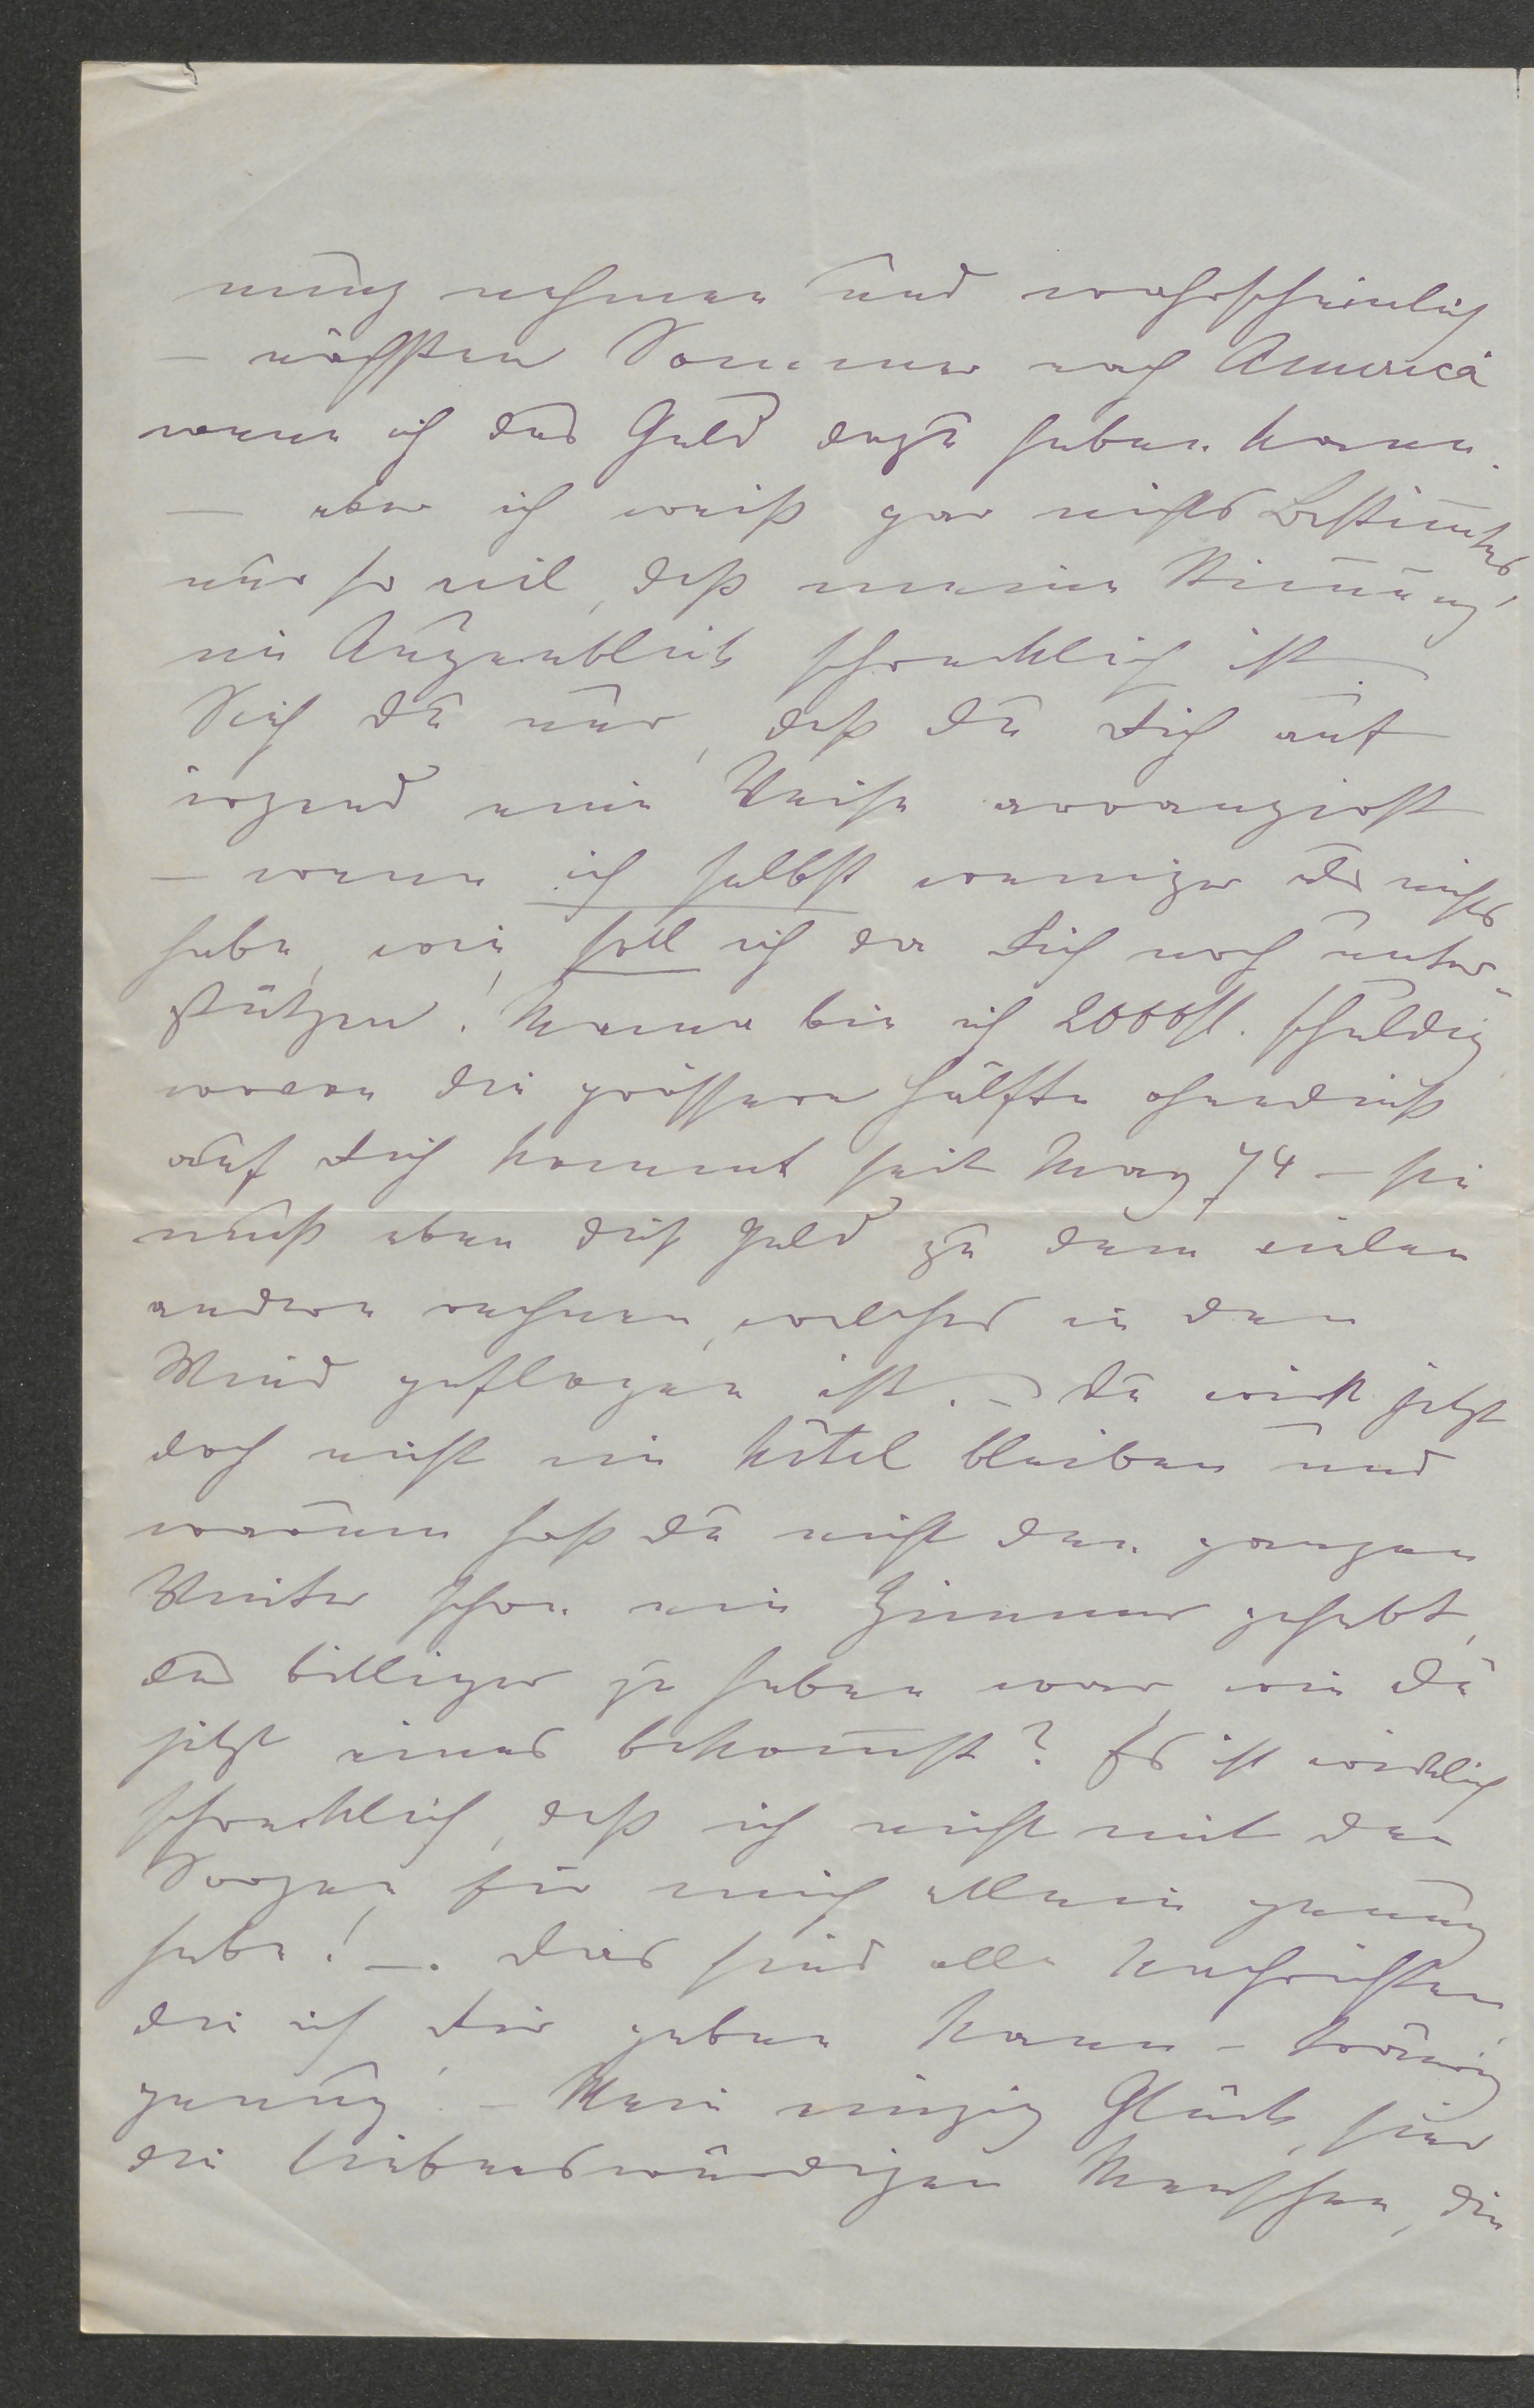 nung nehmen und wahrscheinlich
– nächsten Sommer nach America
wenn ich das Geld dazu haben kann.
– aber ich weiß gar nichts Bestimmtes,
nur so viel, daß meine Stimmung
im Augenblick schrecklich ist.
Sieh Du nur, daß Du Dich auf
irgend eine Weise arrangirst
– wenn ich selbst weniger als nichts
habe, wie soll ich da Dich noch unter-
stützen! Mama bin ich 2000 fl. schuldig
wovon die grössere Hälfte ohnedieß
auf Dich kommt seit May 74 – sie
muß eben dies Geld zu dem vielen
andern rechnen, welches in den
Wind geflogen ist. – Du wirst jetzt
doch nicht im Hôtel bleiben und
warum hast Du nicht den ganzen
Winter schon ein Zimmer gehabt,
das billiger zu haben war, wie Du
jetzt eines bekommst? Es ist wirklich
schrecklich, daß ich nicht mit den
Sorgen für mich allein genug
habe! –. Das sind alle Nachrichten
die ich Dir geben kann – traurig
genug! – Mein einzig Glück, sind
die liebenswürdigen Menschen, die